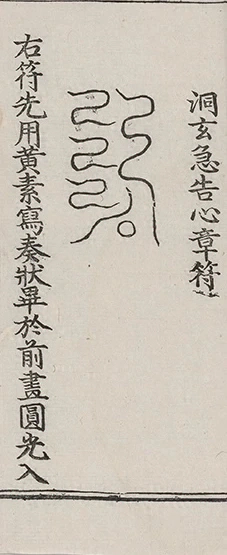 洞玄急告心章符
右符先用黃素寫奏狀畢於前畫圓光入